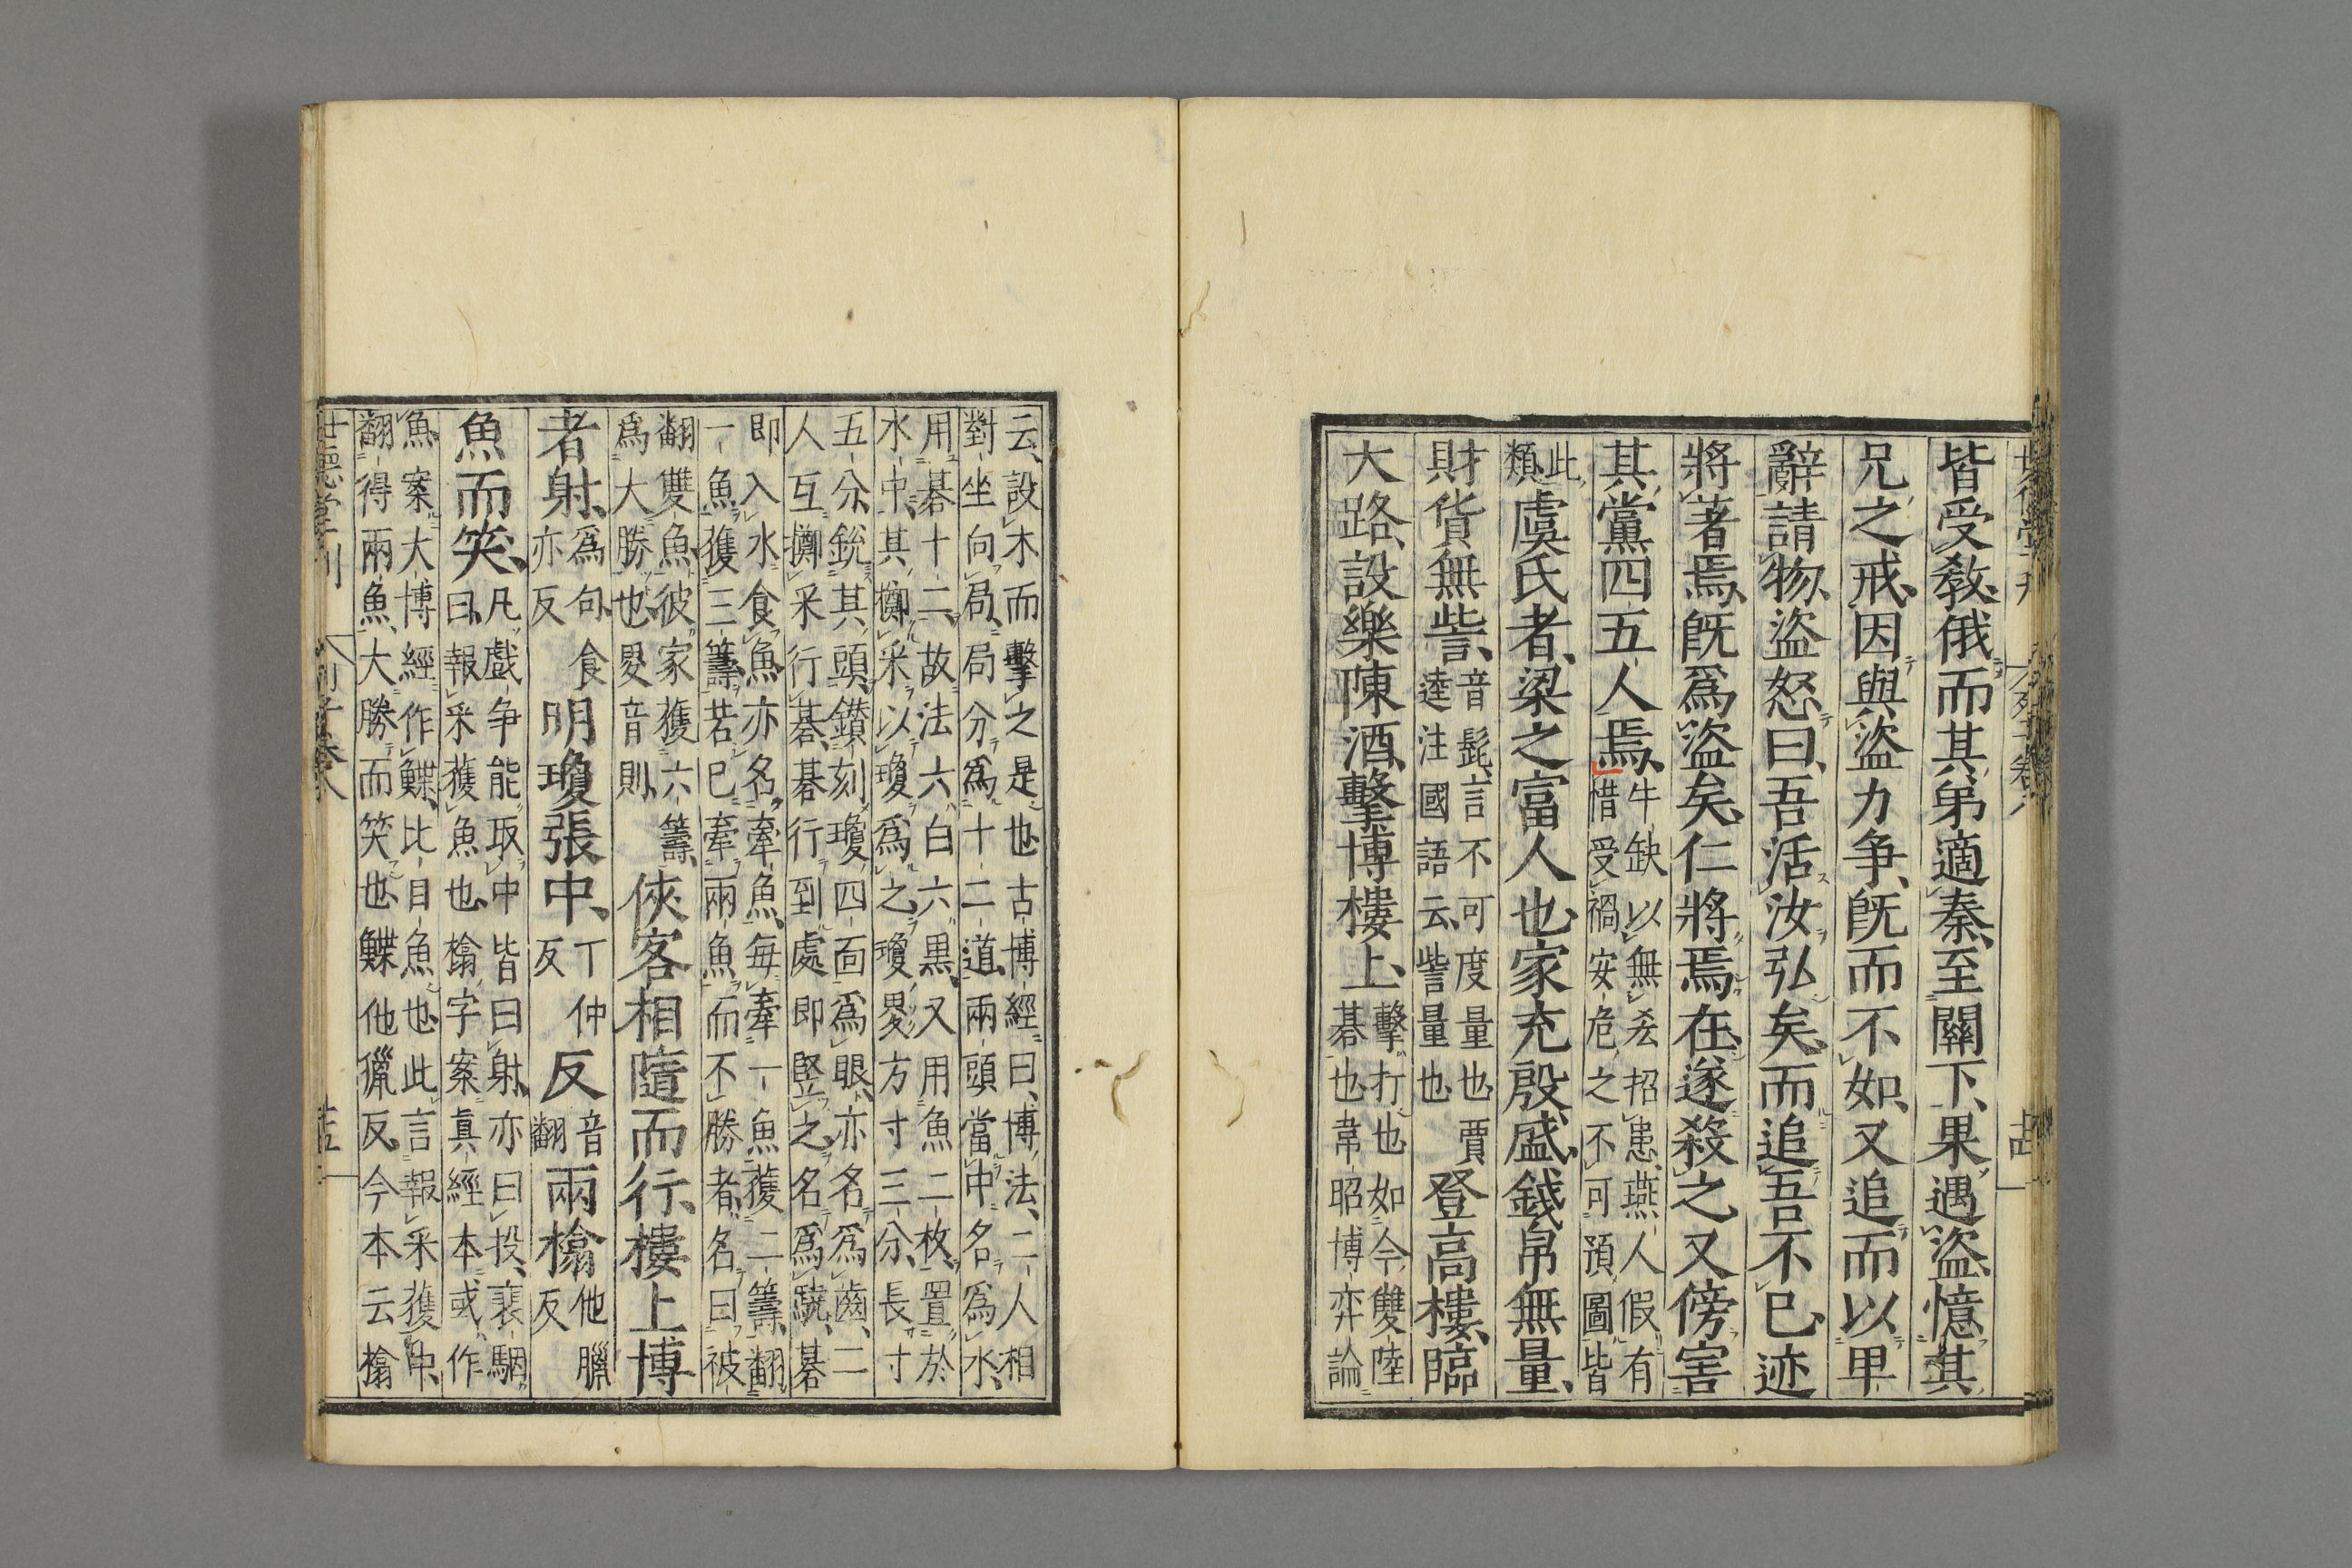 皆受教俄而其弟適秦至關下果遇盜憶其
兄之戒因與盜力争旣而不如又追而以卑
辭請物盜怒曰吾活汝弘矣而追吾不已迹
將著焉旣爲盜矣仁將焉在遂殺之又傍害
其黨四五人焉牛缺以無㳟招患燕人假有
惜受禍安危之不可預圖皆
此
類虞氏者梁之富人也家充殷盛錢帛無量
財貨無訾音髭言不可度量也賈
逵注國語云訾量也登高樓臨
大路設樂陳酒擊博樓上擊打也如今雙陸
碁也韋昭博弈論
云設木而擊之是也古博經曰博法二人相
對坐向局局分爲十二道兩頭當中名爲水
用碁十二故法六白六黒又用魚二枚置於
水中其擲采以瓊爲之瓊畟方寸三分長寸
五分銳其頭鑚刻瓊四面爲眼亦名爲齒二
人互擲采行碁碁行到處即竪之名爲驍碁
即入水食魚亦名牽魚每牽一魚獲二籌翻
一魚獲三籌若已牽兩魚而不勝者名曰被
翻雙魚彼家獲六籌
爲大勝也畟音則俠客相隨而行樓上博
者射爲句食
亦反明瓊張中丁仲
反反音
翻兩㯓他臘
反
魚而笑凡戲争能取中皆曰射亦曰投裴駰
曰報采獲魚也㯓字案眞經本或作
魚案大博經作鰈比目魚也此言報采獲中
翻得兩魚大勝而笑也鰈他獵反今本云㯓
世德堂刊 列子卷八